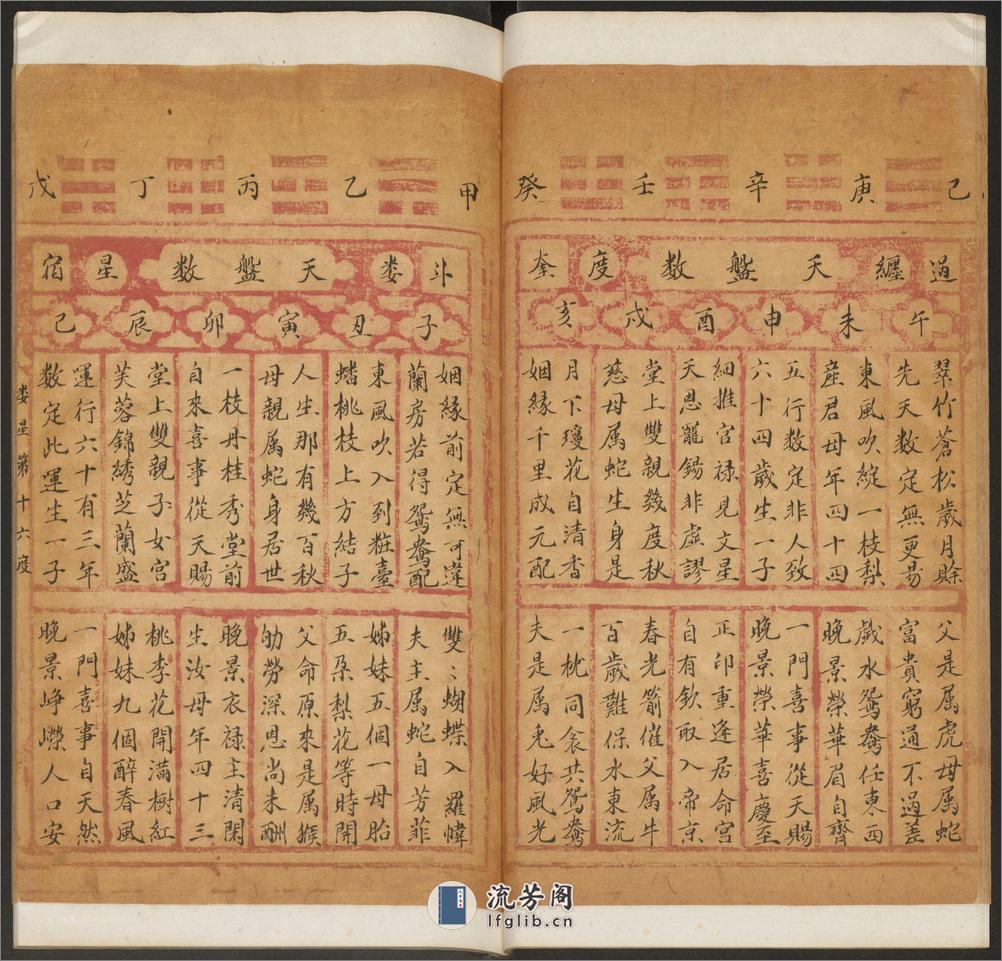 己 庚 辛 壬 癸
過纏 天盤數 度奎
午 未 申 酉 戌 亥
翠竹蒼松歲月賒
先天數定無更易
東風吹綻一枝梨
産君母年四十四
五行數定非人致
六十四歲生一子
細推官禄見文星
天恩寵錫非虛謬
堂上雙親幾度秋
慈母属蛇生身是
月下瓊花自清香
姻緣千里成元配
父是属虎母属蛇
富貴窮通不過差
戲水鴛鴦任東西
晚景榮華眉自齊
一門喜事從天賜
晚景榮華喜慶至
正印重逢居命宮
自有欽取入帝京
春光箭催父属牛
百歲難保水東流
一枕同衾共鴛鴦
夫是属兎好風光
甲 乙 丙 丁 戊
斗娄 天盤数 星宿
子 丑 寅 卯 辰 巳
姻緣前定無可違
蘭房若得鴛鴦配
東風吹入到粧臺
蟠桃枝上方結子
人生那有幾百秋
母親属蛇身居世
一枝丹桂秀堂前
自來喜事從天賜
堂上雙親子女宮
芙蓉錦綉芝蘭盛
運行六十有三年
数定此運生一子
雙〻蝴蝶入羅幃
夫主属蛇自芳菲
姊妹五個一母胎
五朶梨花等時開
父命原來是属猴
劬勞深恩尚未酬
晚景衣禄主清閑
生汝母年四十三
桃李花開滿樹紅
姊妹九個醉春風
一門喜事自天然
晚景崢嶸人口安
娄星第十六度
流芳阁
lfglib.cn